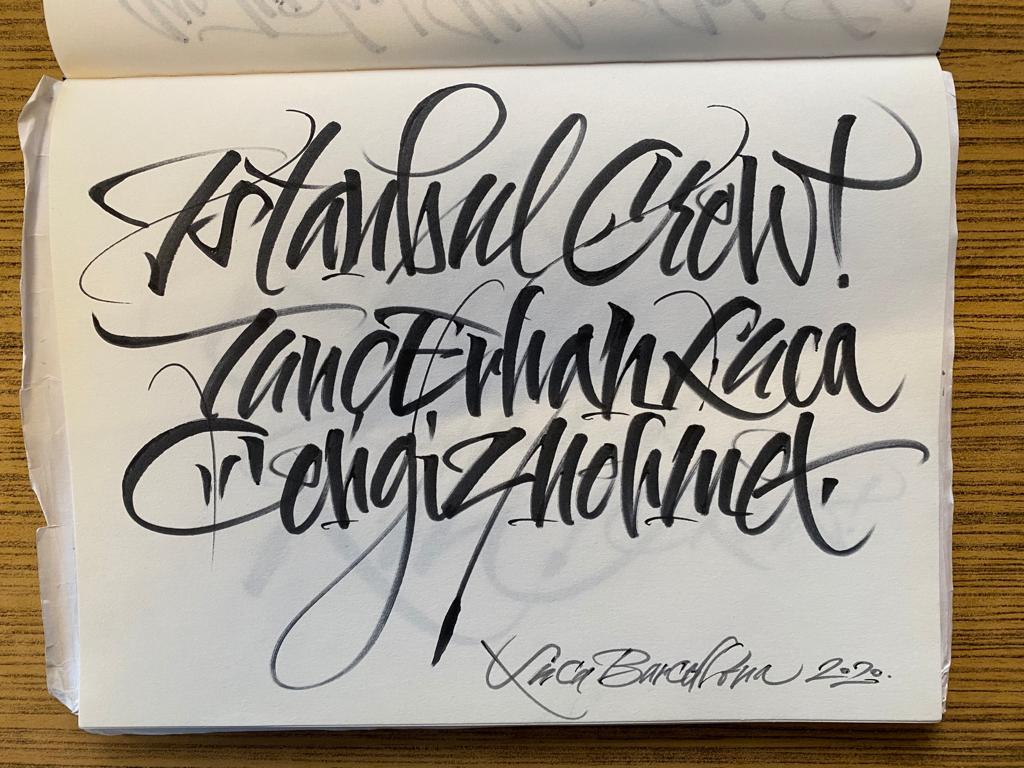 Istanbul Crew!
Tanç Erhan Luca
Cengiz Mehmet.
Luca Barcellona 2020.